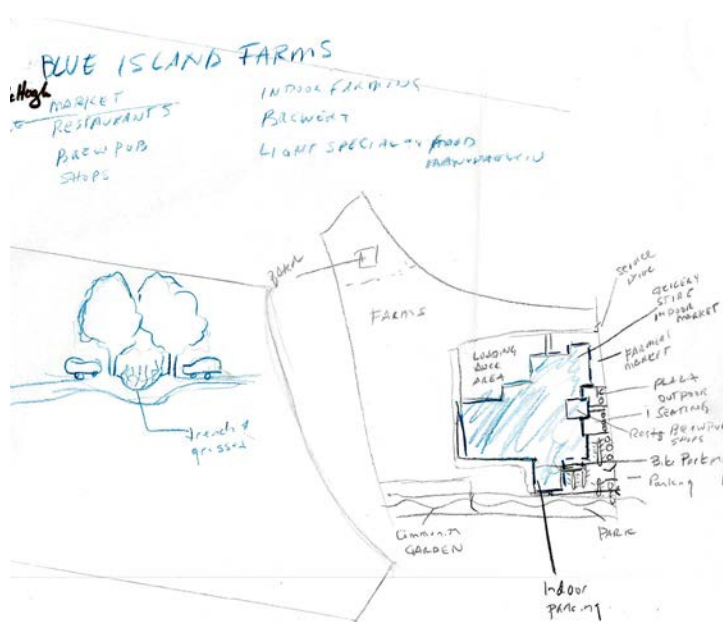 BLUE ISLAND FARMS
MARKET
RESTAURANTS
BREWPUB
SHOPS
INDOOR FARMING
BREWERY
LIGHT SPECIALTY FOOD
BARN
FARMS
LOADING
DOCK
AREA
SERVICE
DRIVE
INDOOR
MARKET
FARMERS
MARKET
PLAZA
OUTDOOR
SEATING
BREWPUB
SHOPS
Bike Parking
Parking
trench &
grasses
Community
GARDEN
PARK
Indoor
parking